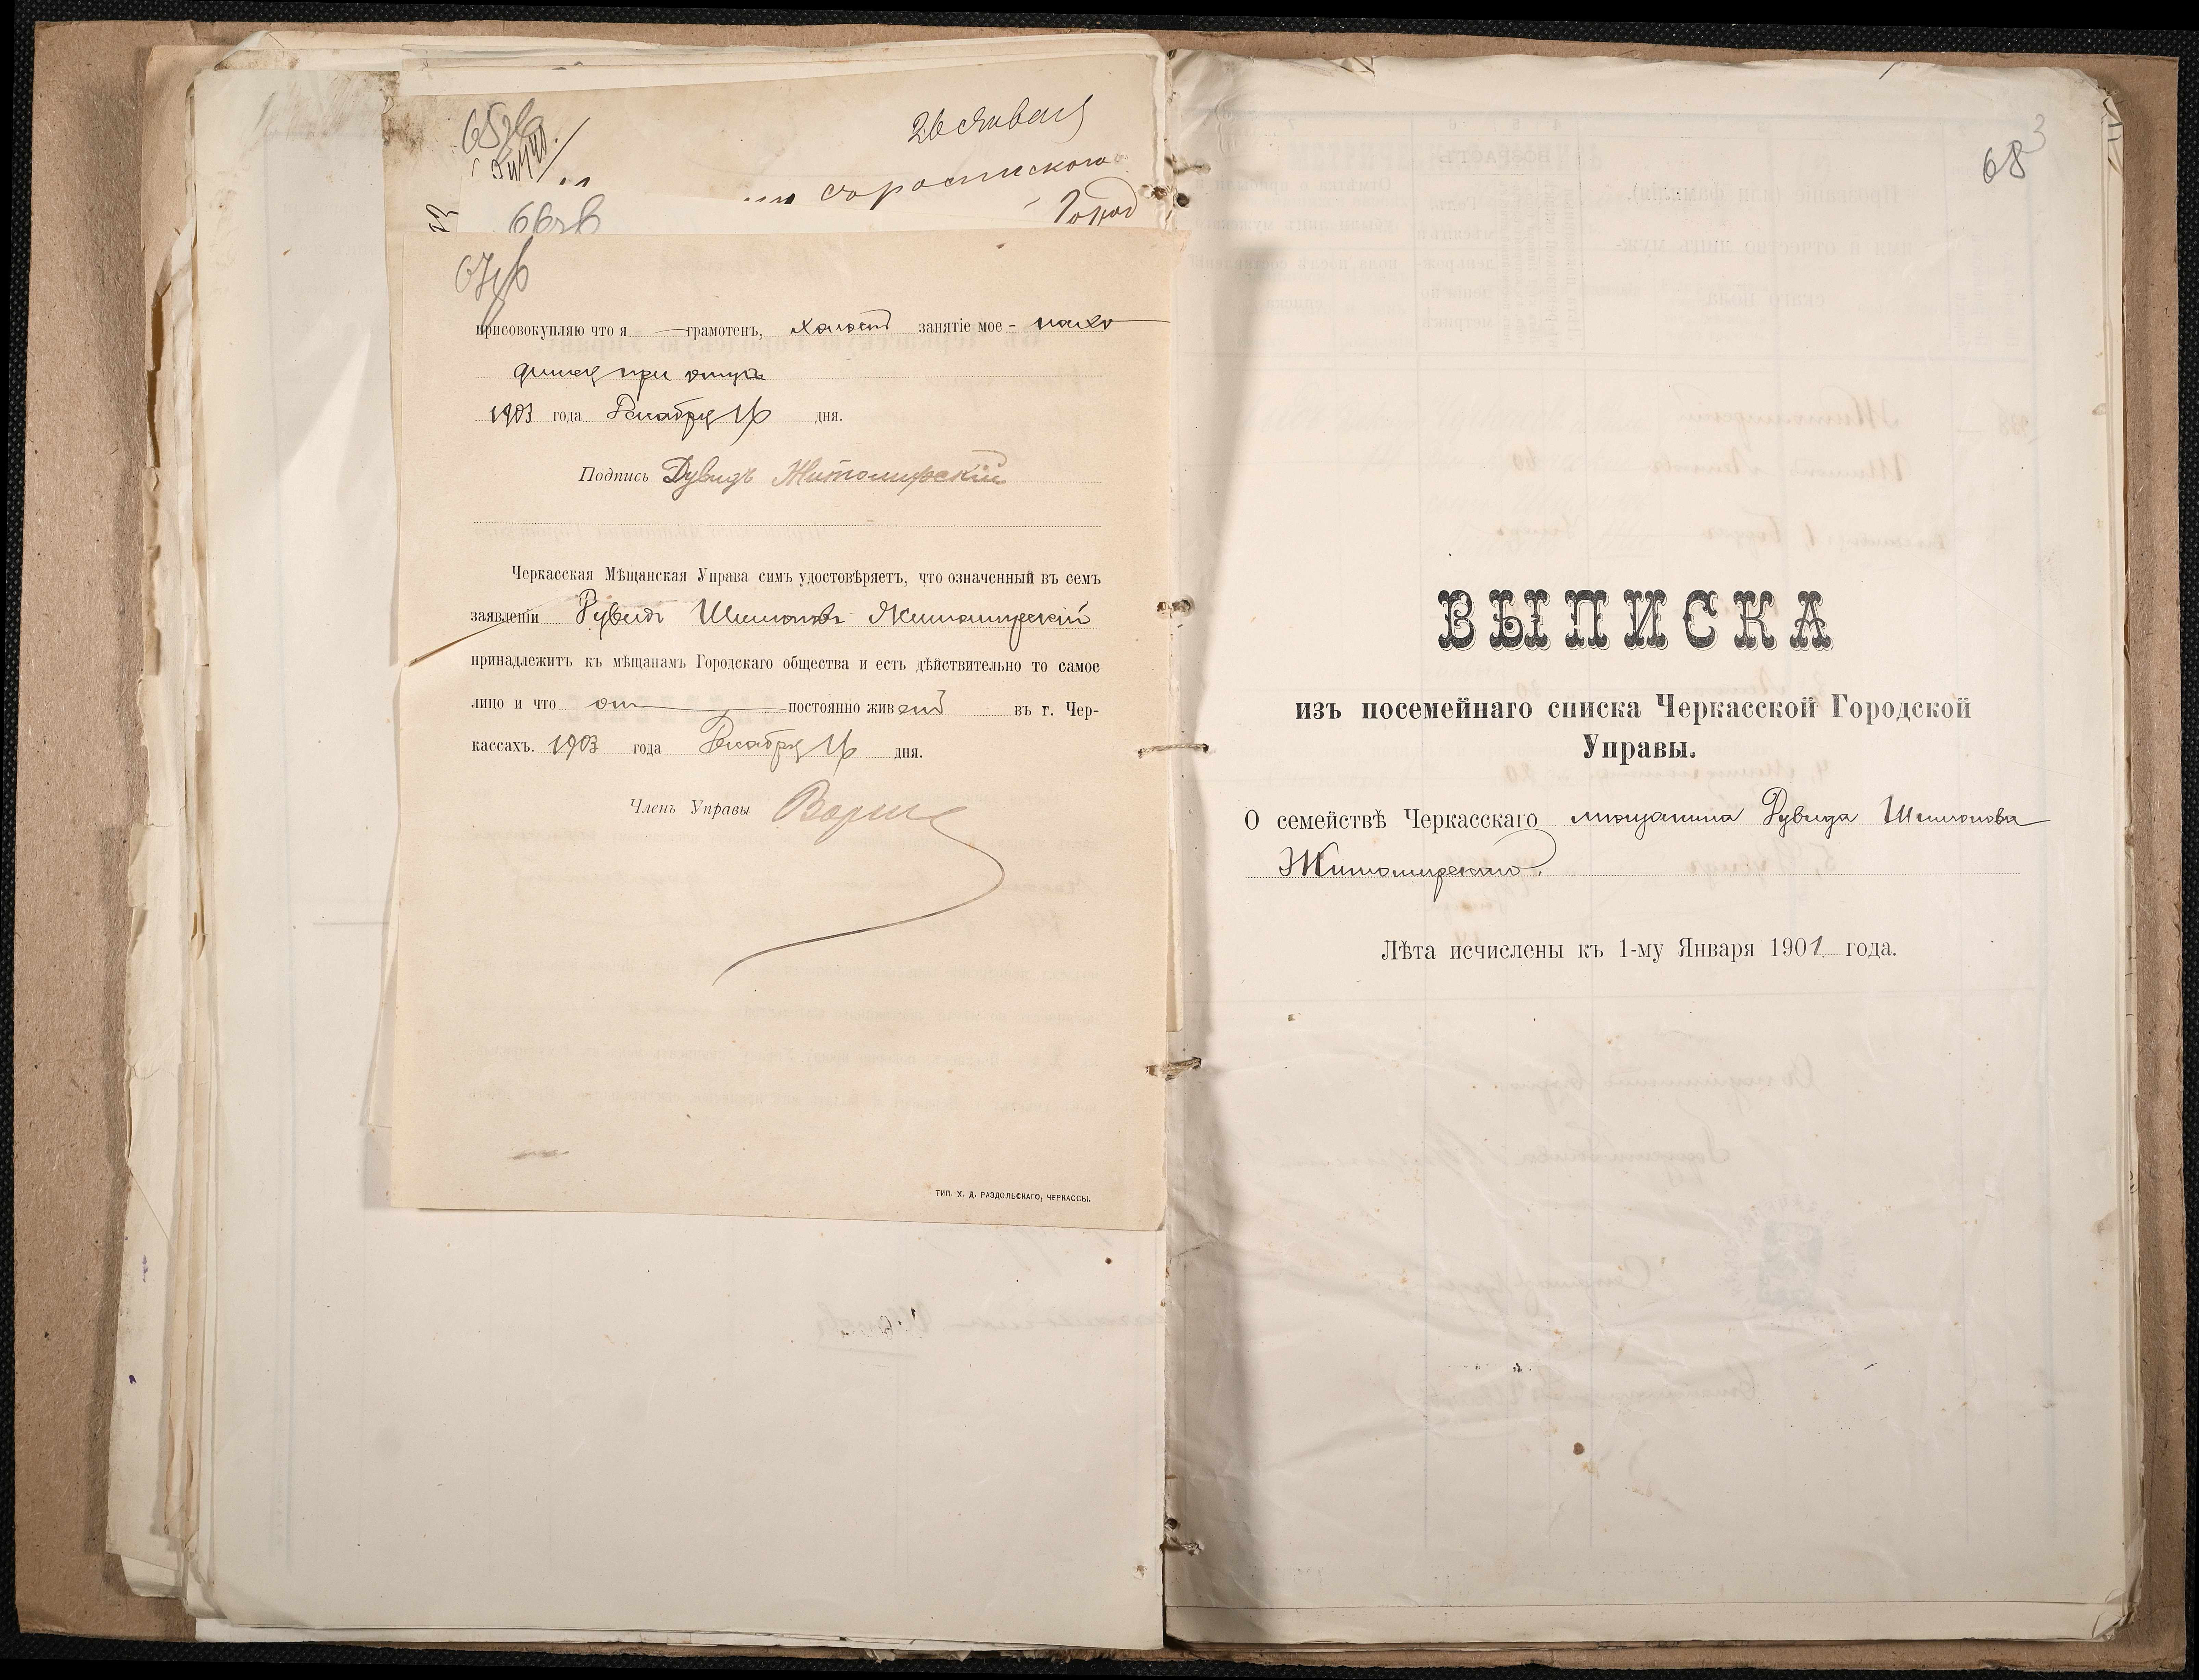 65об
26 Января
66об
Город
67об
присовокупляю что я грамотенъ, холостъ занятіе мое - нахо
дится при отцѣ
1903 года Декабря 16 дня.
Подпись Дувидъ Житомирскій
Черкасская Мѣщанская Управа симъ удостовѣряетъ, что означенный въ семъ
заявленіи Дувидъ Шимоновъ Житомирскій
принадлежитъ къ мѣщанамъ Городскаго общества и есть дѣйствительно то самое
лицо и что онъ постоянно живетъ въ г. Чер-
кассахъ. 1903 года Декабря 16 дня.
Членъ Управы
ТИП. Х. Д. РАЗДОЛЬСКАГО, ЧЕРКАССЫ.
68
3
ВЫПИСКА
изъ посемейнаго списка Черкасской Городской
Управы.
О семействѣ Черкасскаго мѣщанина Дувида Шимонова
Житомирскаго.
Лѣта исчислены къ 1-му Января 1901 года.